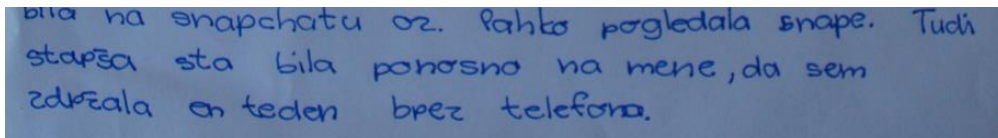 bila na snapchatu oz. lahko pogledala snape. Tudi
starša sta bila ponosno na mene, da sem
zdržala en teden brez telefona.